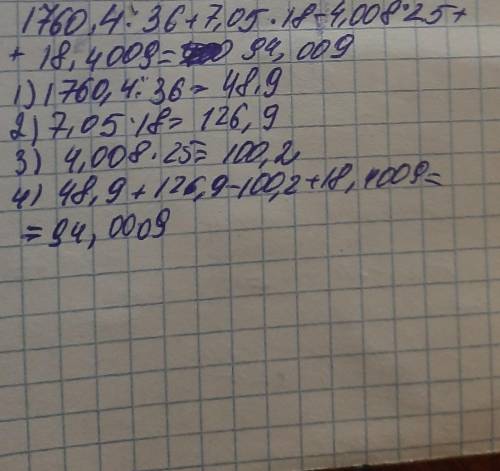 1760,4:36+7,05·18-4,008·25+
+ 18,4009= 94,009
1) 1760,4:36= 48,9
2) 7,05·18= 126,9
3) 4,008·25= 100,2
4) 48,9+126,9-100,2+18,4009=
= 94,0009